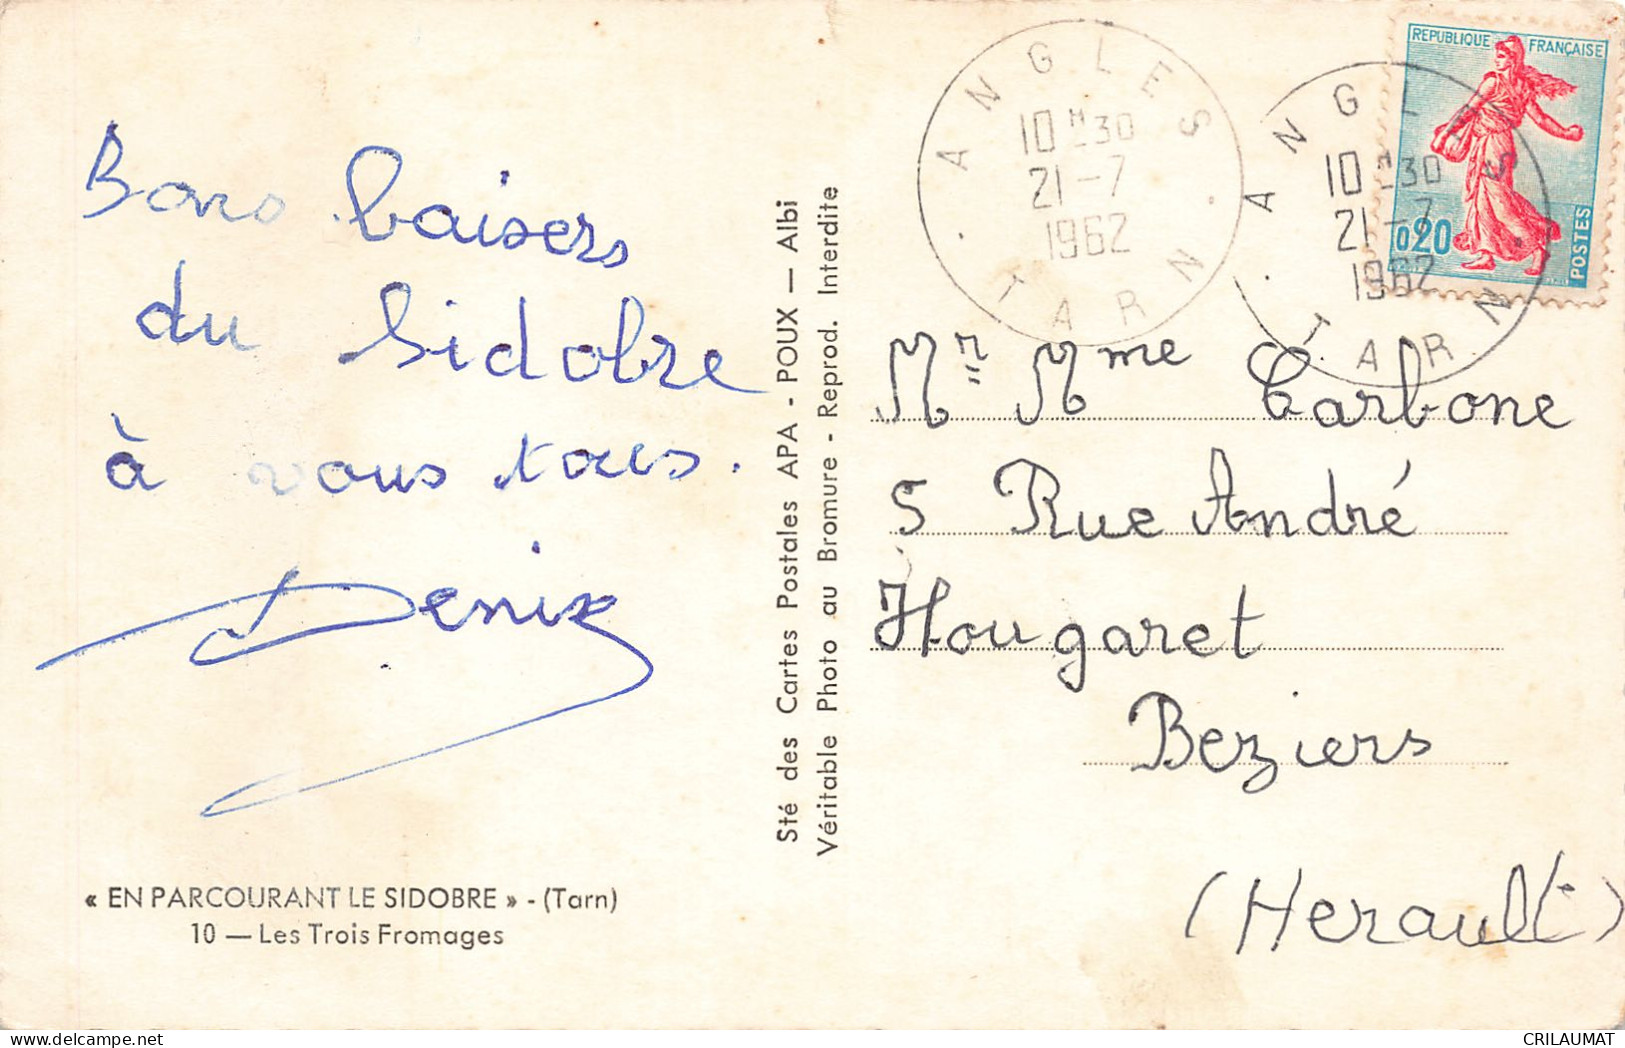 Bons baisers
du Sidobre
à vous tous.
« EN PARCOURANT LE SIDOBRE » - (Tarn)
10 — Les Trois Fromages
Sté des Cartes Postales APA - POUX — Albi
Véritable Photo au Bromure - Reprod. Interdite
ANGLES
10 H 30
21-7
1962
TARN
ANGLES
10 H 30
21-7
1962
TARN
REPUBLIQUE FRANÇAISE
0,20
POSTES
Mr Mme Carbone
5 Rue André
Hougaret
Beziers
(Herault)
CRILAUMAT